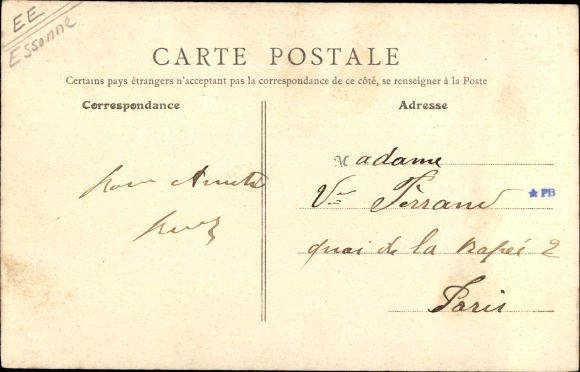 EE
Essonne
CARTE POSTALE
Certains pays étrangers n'acceptant pas la correspondance de ce côté, se renseigner à la Poste
Correspondance
Adresse
Madame
Vve Ferrand
★ PB
quai de la Rapée 2
Paris